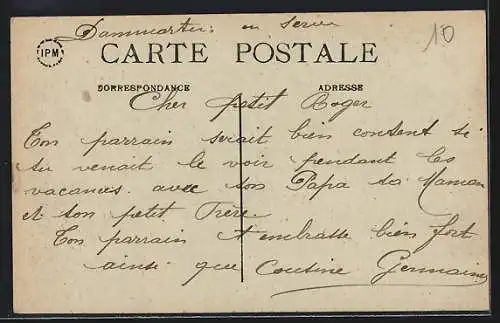 Dammartin en Serve
10
IPM
CARTE POSTALE
CORRESPONDANCE
ADRESSE
Cher petit Roger
Ton parrain serait bien content si
tu venait le voir pendant les
vacances avec ton Papa ta Maman
et ton petit Frère
Ton parrain t embrasse bien fort
ainsi que Cousine Germaine